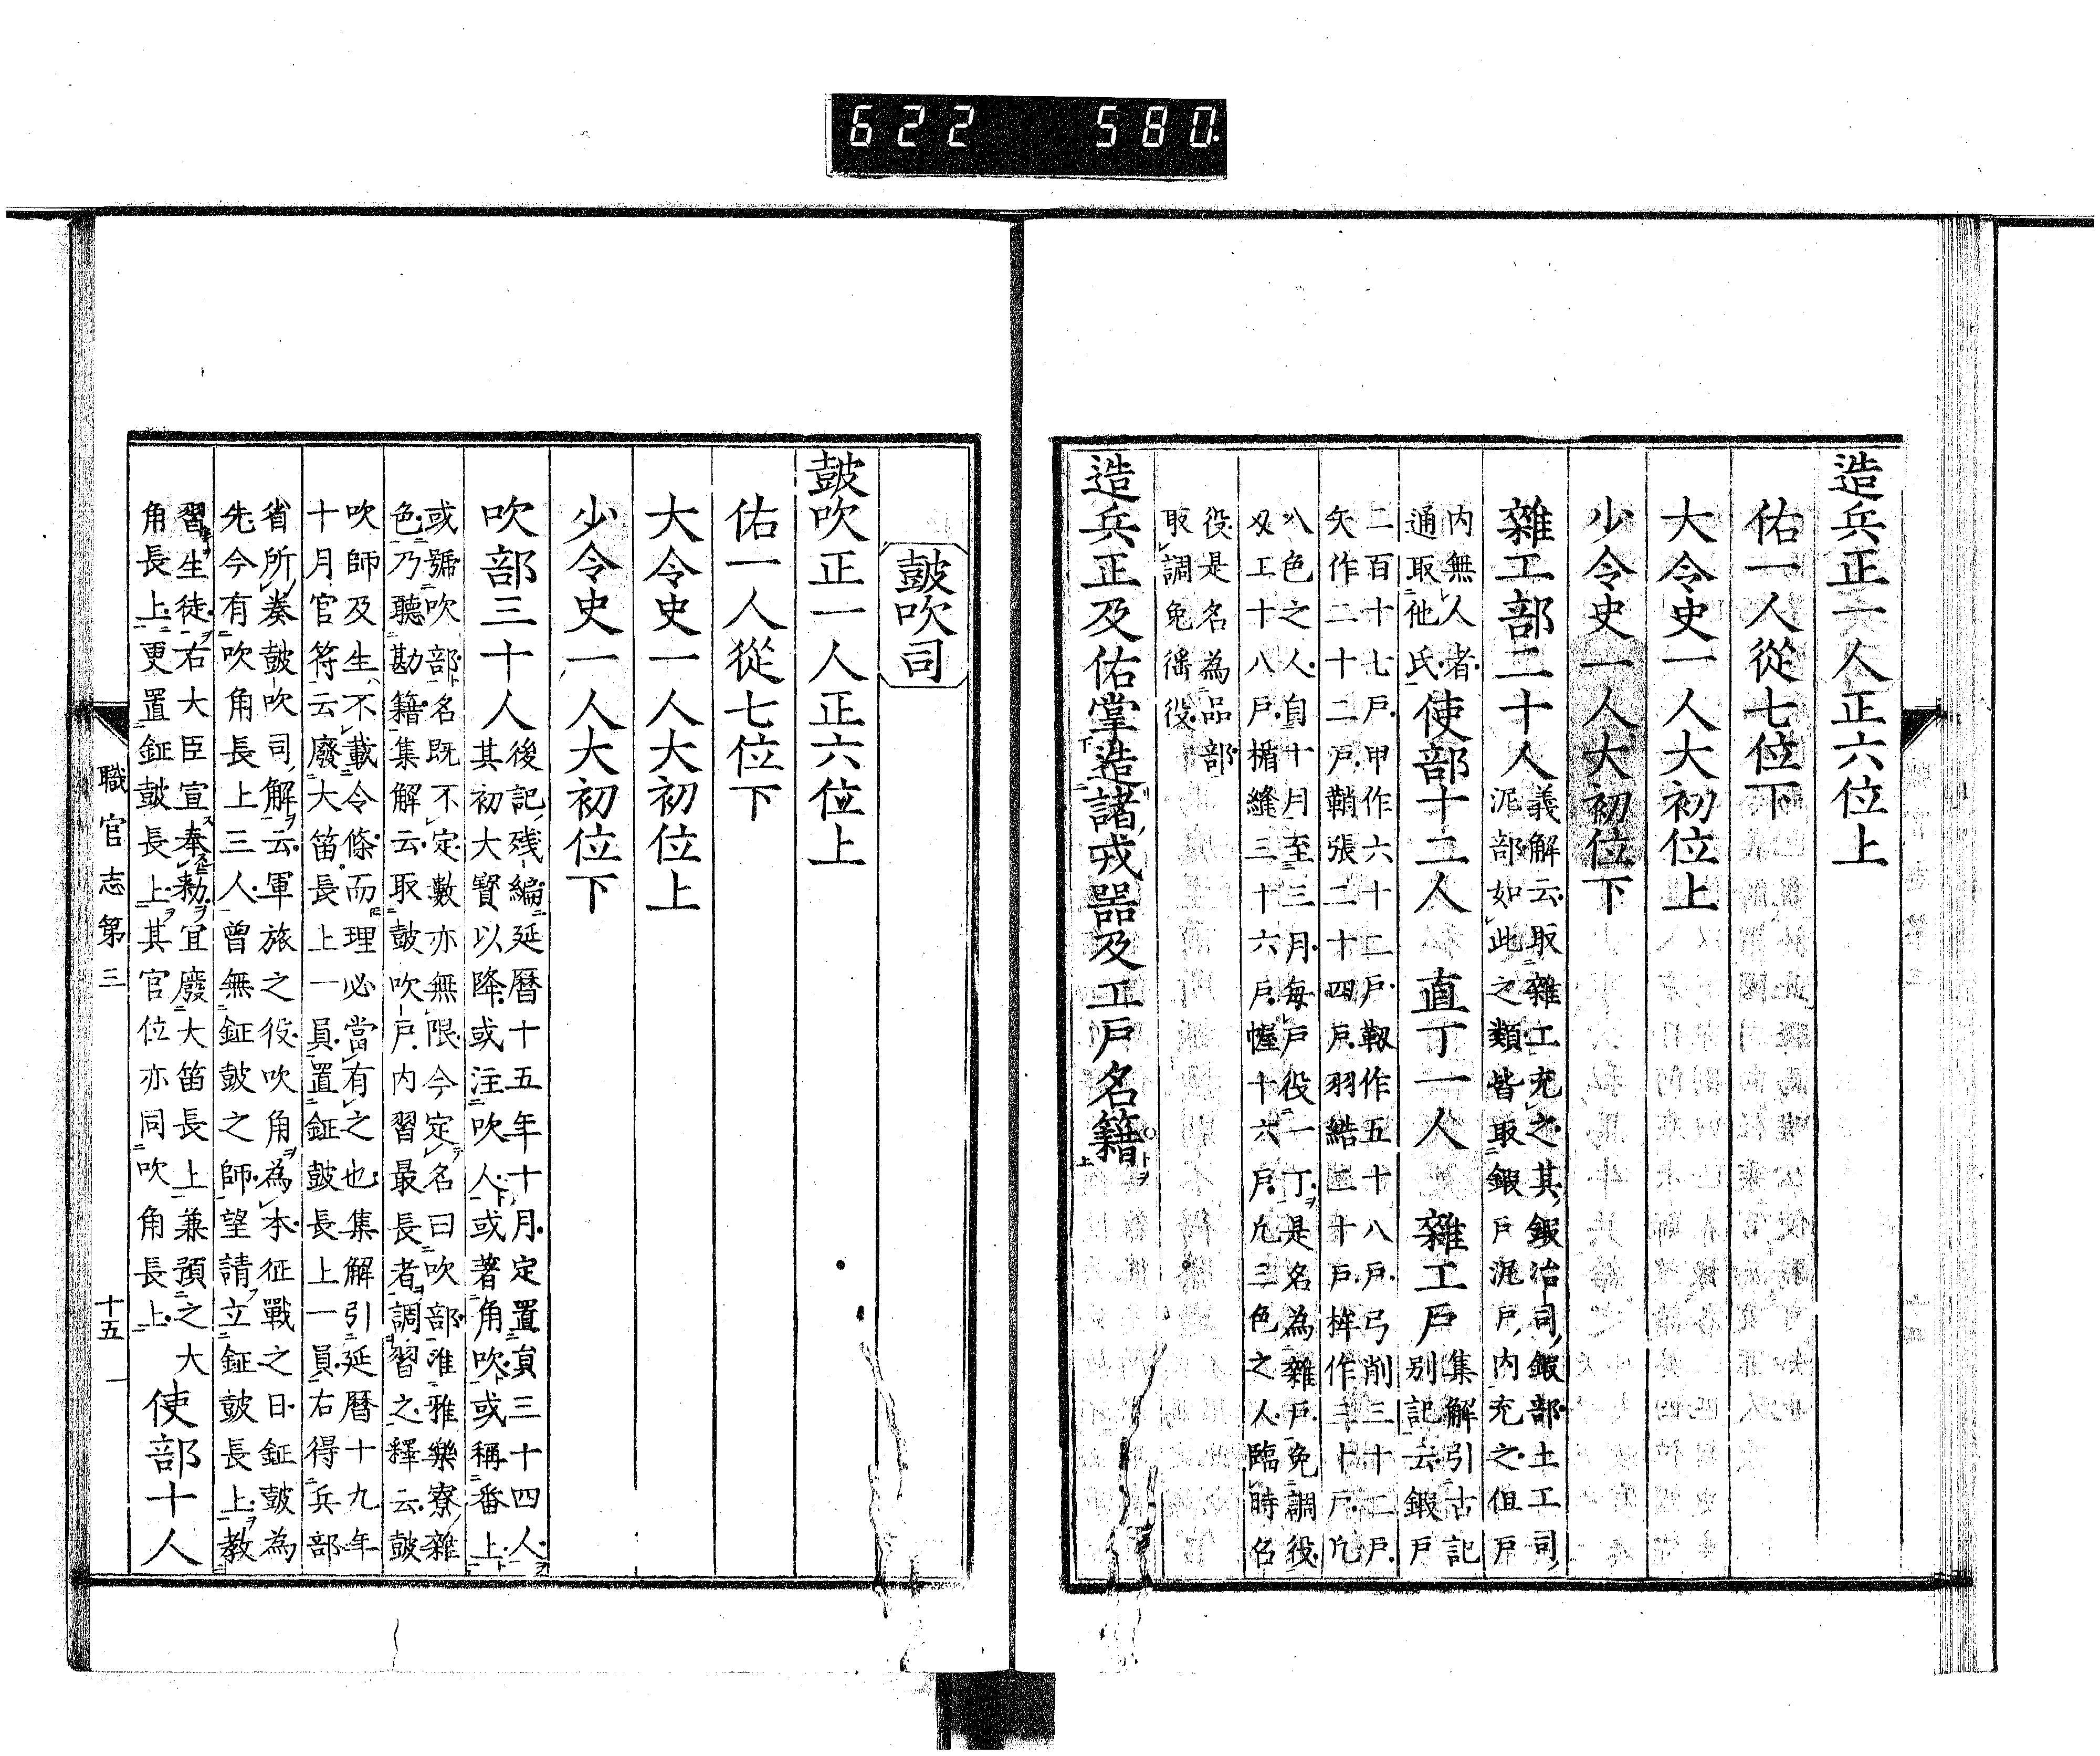 622 580
造兵正一人正六位上
佑一人從七位下
大令史一人大初位上
少令史一人大初位下
雜工部二十人
義解云取雜工充之其鍜冶司鍜部土工司
泥部如此之類皆取鍜戶泥戶內充之但戶
內無人者
通取他氏
使部十二人 直丁一人 雜工戶
集解引古記
別記云鍜戶
二百十七戶甲作六十二戶靱作五十八戶弓削三十二戶
矢作二十二戶鞆張二十四戶羽結二十戶桙作三十戶凡
八色之人自十月至三月每戶役一丁是名為雜戶免調役
爪工十八戶楯縫三十六戶幄十六戶凡三色之人臨時召
役是名為品部
取調免徭役
造兵正及佑掌造諸戎器及工戶名籍
鼓吹司
鼓吹正一人正六位上
佑一人從七位下
大令史一人大初位上
少令史一人大初位下
吹部三十人
後記殘編延曆十五年十月定置員三十四人
其初大寶以降或注吹人或著角吹或稱番上
或號吹部名既不定數亦無限今定名曰吹部准雅樂寮雜
色乃聽勘籍集解云取鼓吹戶內習最長者調習之釋云鼓
吹師及生不載令條而理必當有之也集解引延曆十九年
十月官符云廢大笛長上一員置鉦鼓長上一員右得兵部
省所奏鼓吹司解云軍旅之役吹角為本征戰之日鉦鼓為
先今有吹角長上三人曾無鉦鼓之師望請立鉦鼓長上教
習生徒右大臣宣奉勅宜廢大笛長上兼預之大
角長上更置鉦鼓長上其官位亦同吹角長上
使部十人
職官志第三
十五